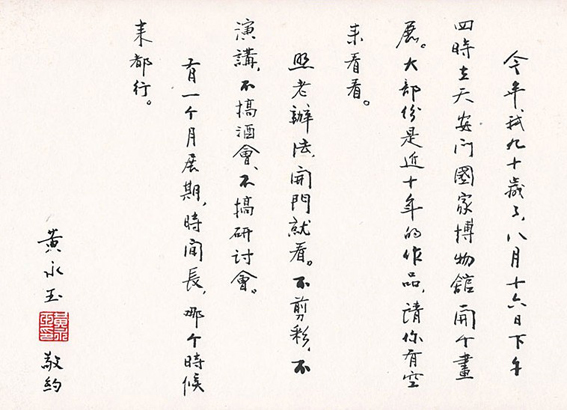 今年,我九十歲了,八月十六日下午
四時在天安门國家博物館開个畫
展。大部份是近十年的作品,請你有空
来看看。
照老辦法,開門就看。不剪彩,不
演講,不搞酒會、不搞研讨會。
有一个月展期,時间長,哪个時候
来都行。
黄永玉
敬約